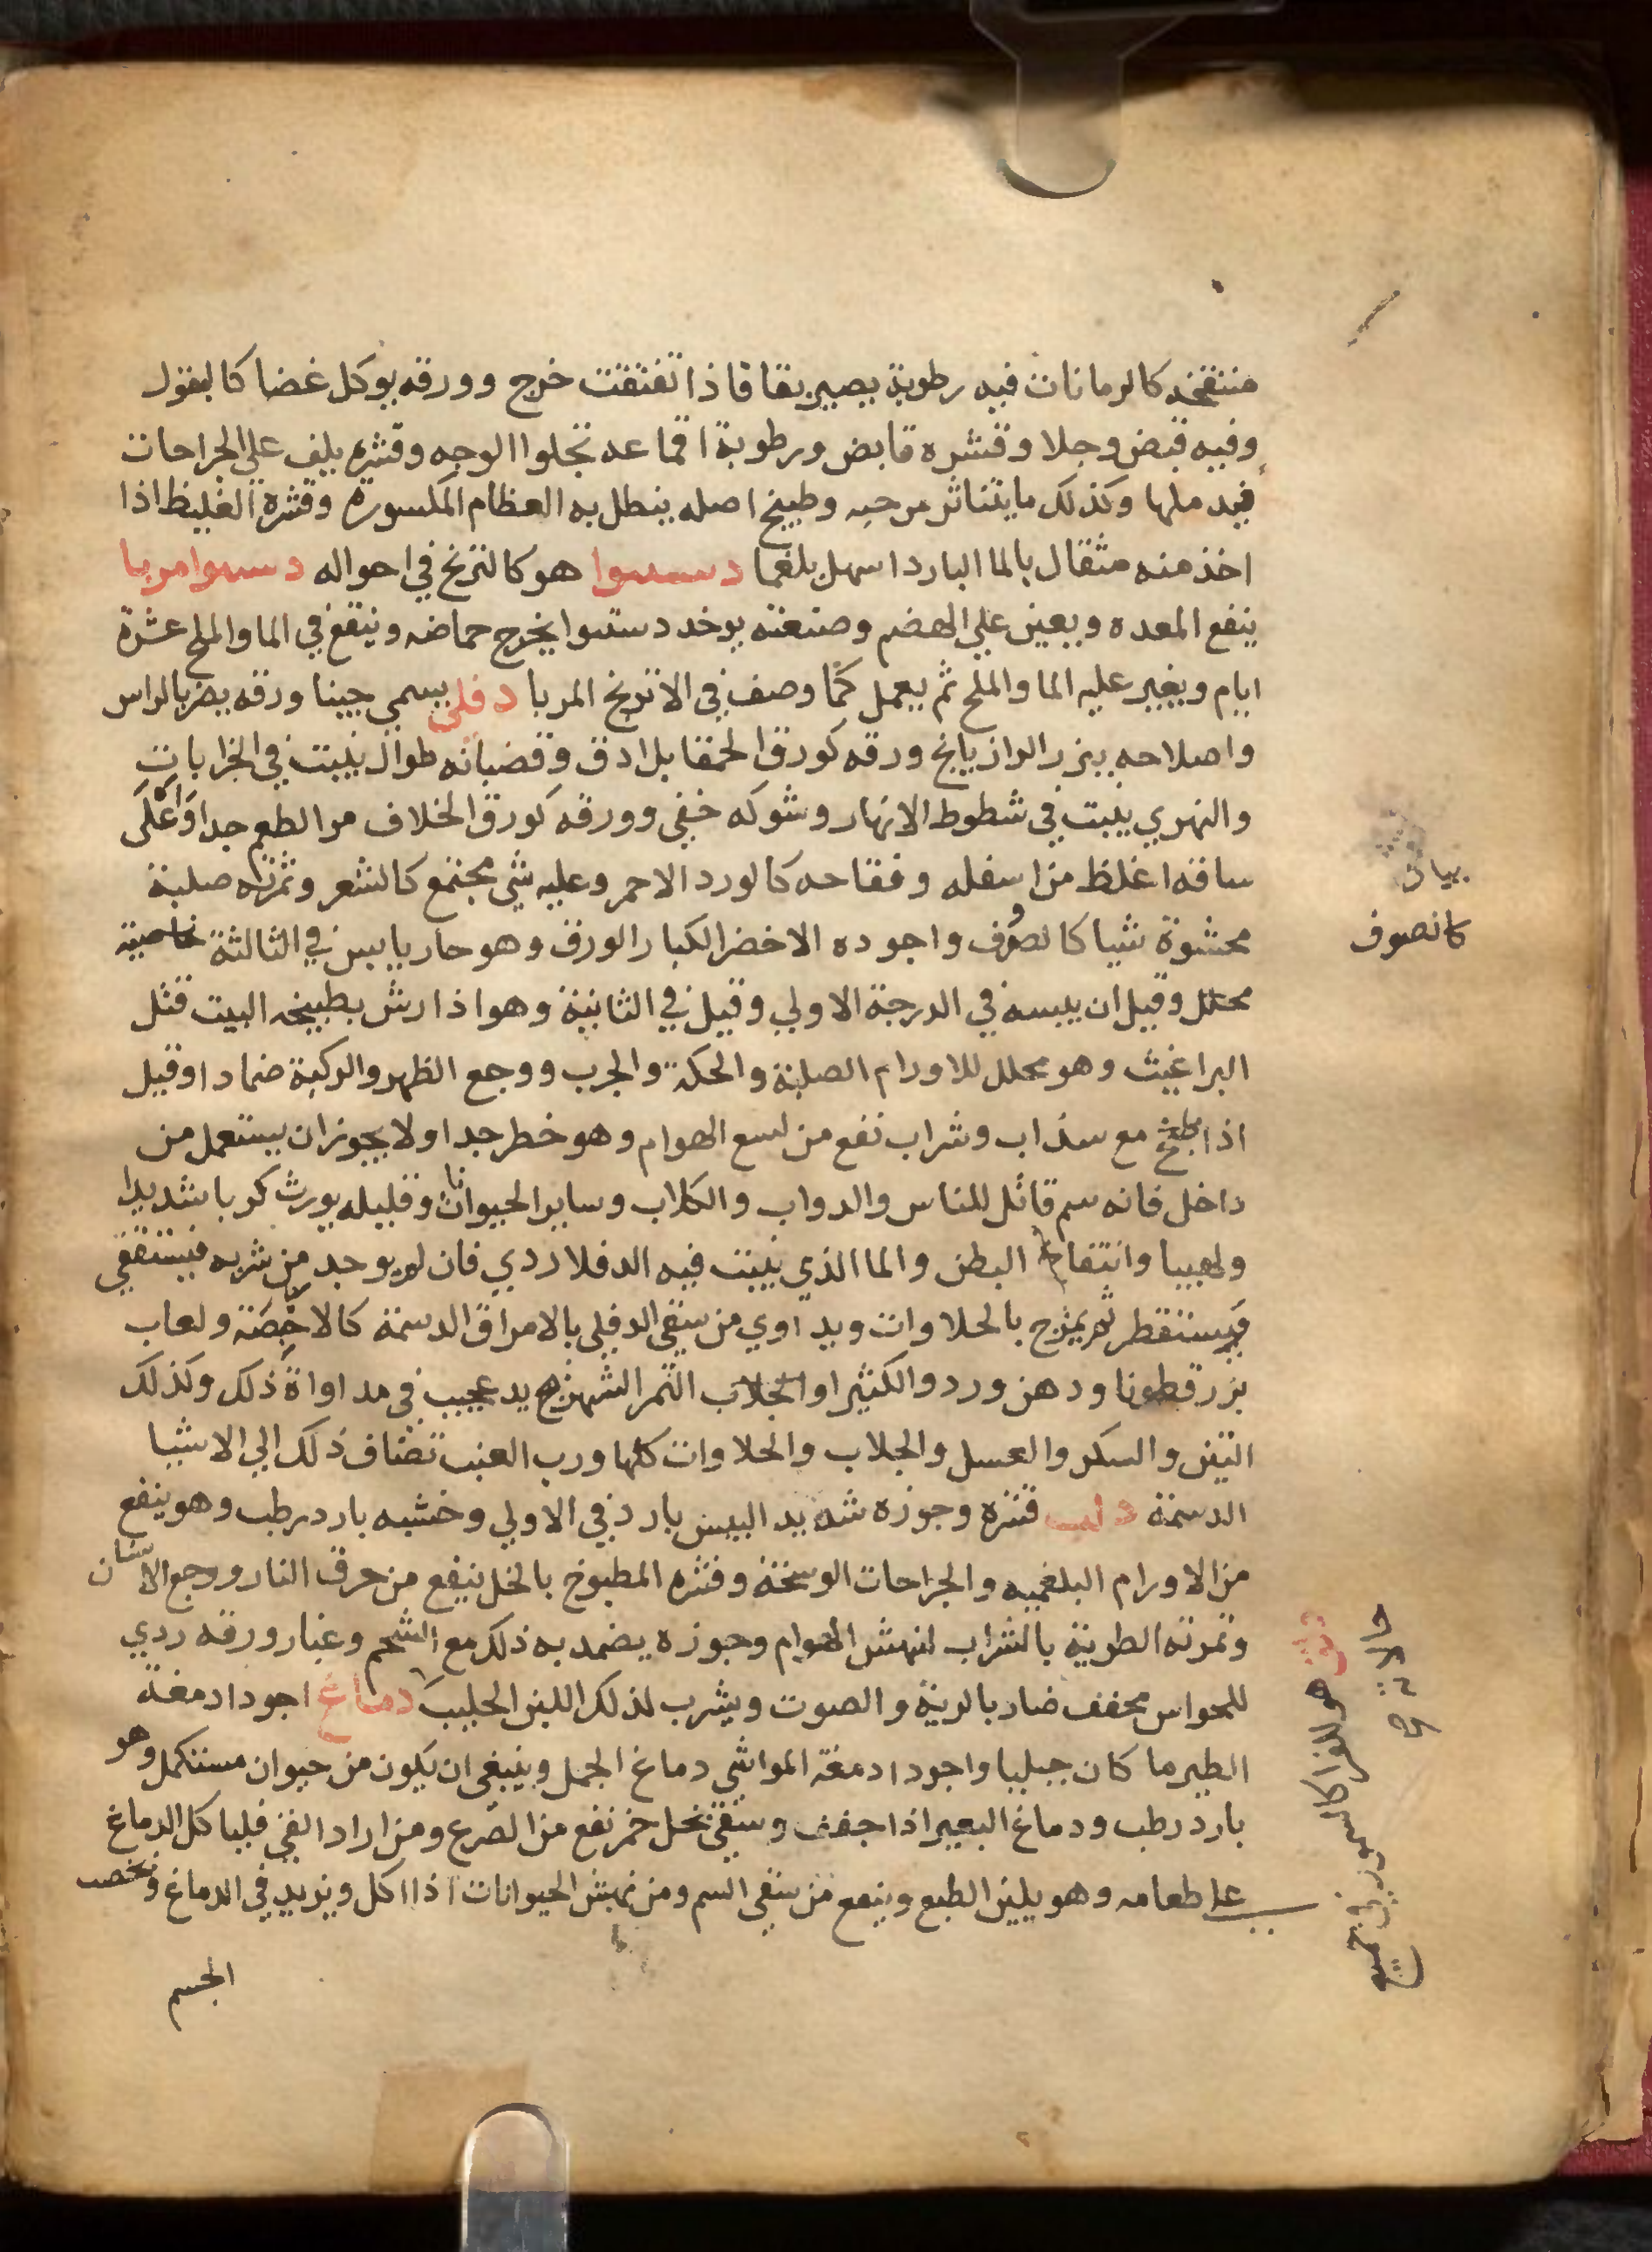 منتفخه كالرمانات فيه رطوبة يصير بقا فاذا تفتقت خرج وورقه يوكل غضا كالبقول
وفيه قبض وجلا وقشره قابض ورطوبة اقماعه تجلوا الوجه وقشره يلف علي الجراحات
فيدملها وكذلك ما يتناثر من حبه وطبيخ اصله ينطل به العظام المكسورة وقشره الغليظ اذا
اخذ منه مثقال بالما البارد اسهل بلغما دستنبوا هو كالترنج في احواله دستنبوا مربا
ينفع المعده ويعين علي الهضم وصنعته يوخد دستنبوا يخرج حماضه وينقع في الما والملح عشرة
ايام ويغير عليه الما والملح ثم يعمل كما وصف في الاترنج المربا دفلي يسمي جبنا ورقه يضر بالراس
واصلاحه ببزر الرازيانج ورقه كورق الحمقا بل ادق وقضبانه طوال ينبت في الخرابات
والنهري ينبت في شطوط الانهار وشوكه خفي وورقه كورق الخلاف مر الطعم جدا واعلي
ساقه اغلظ من اسفله وفقاحه كالورد الاحمر وعليه شي مجتمع كالشعر وثمرته صلبة
محشوة شيا كالصوف واجوده الاخضر الكبار الورق وهو حار يابس في الثالثة خاصيته
محلل وقيل ان يبسه في الدرجة الاولي وقيل في الثانية وهو اذا رش بطبيخه البيت قتل
البراغيث وهو محلل للاورام الصلبة والحكة والجرب ووجع الظهر والركبة ضمادا وقيل
اذا طبخ مع سذاب وشراب نفع من لسع الهوام وهو خطر جدا ولا يجوز ان يستعمل من
داخل فانه سم قاتل للناس والدواب والكلاب وساير الحيوانات وقليله يورث كربا شديدا
ولهيبا وانتفاخ البطن والما الذي ينبت فيه الدفلا ردي فان لم يوجد من شربه فيستقي
فيستقطر ثم يمزج بالحلاوات ويداوي من سقي الدفلي بالامراق الدسمة كالاخصة ولعاب
بزرقطونا ودهن ورد والكثيرا والجلاب التمر الشهريج يد عجيب في مداواة ذلك وكذلك
التين والسكر والعسل والجلاب والحلاوات كلها ورب العنب تضاف ذلك الي الاشيا
الدسمة دلب قشره وجوزه شديد اليبس بارد في الاولي وخشبه بارد رطب وهو ينفع
من الاورام البلغميه والجراحات الوسخة وقشره المطبوخ بالخل ينفع من حرق النار ووجع الاسنان
وثمرته الطرية بالشراب لنهش الهوام وجوزه يضمد به ذلك مع الشحم وغبار ورقه ردي
للحواس مجفف ضار بالرية والصوت ويشرب لذلك اللبن الحليب دماغ اجود ادمغة
الطير ما كان جبليا واجود ادمغة المواشي دماغ الجمل وينبغي ان يكون من حيوان مستكمل وهو
بارد رطب ودماغ البعير اذا جفف وسقي بخل خمر نفع من الصرع ومن اراد القي فلياكل الدماغ
علي طعامه وهو يلين الطبع وينفع من سقي السم ومن نهش الحيوانات اذا اكل ويزيد في الدماغ ويخصب
الجسم
بيان
كالصوف
هو
حالاته